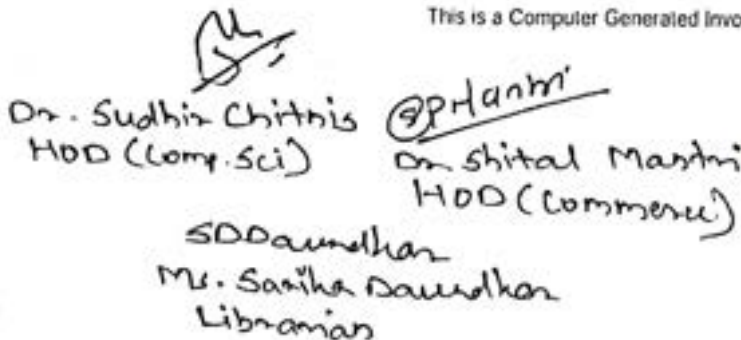 This is a Computer Generated Invo
Dr. Sudhir Chitnis
HOD (Comp. Sci)
Dr. Shital Mantri
HOD (Commerce)
SDDaundkar
Ms. Sarika Daundkar
Librarian